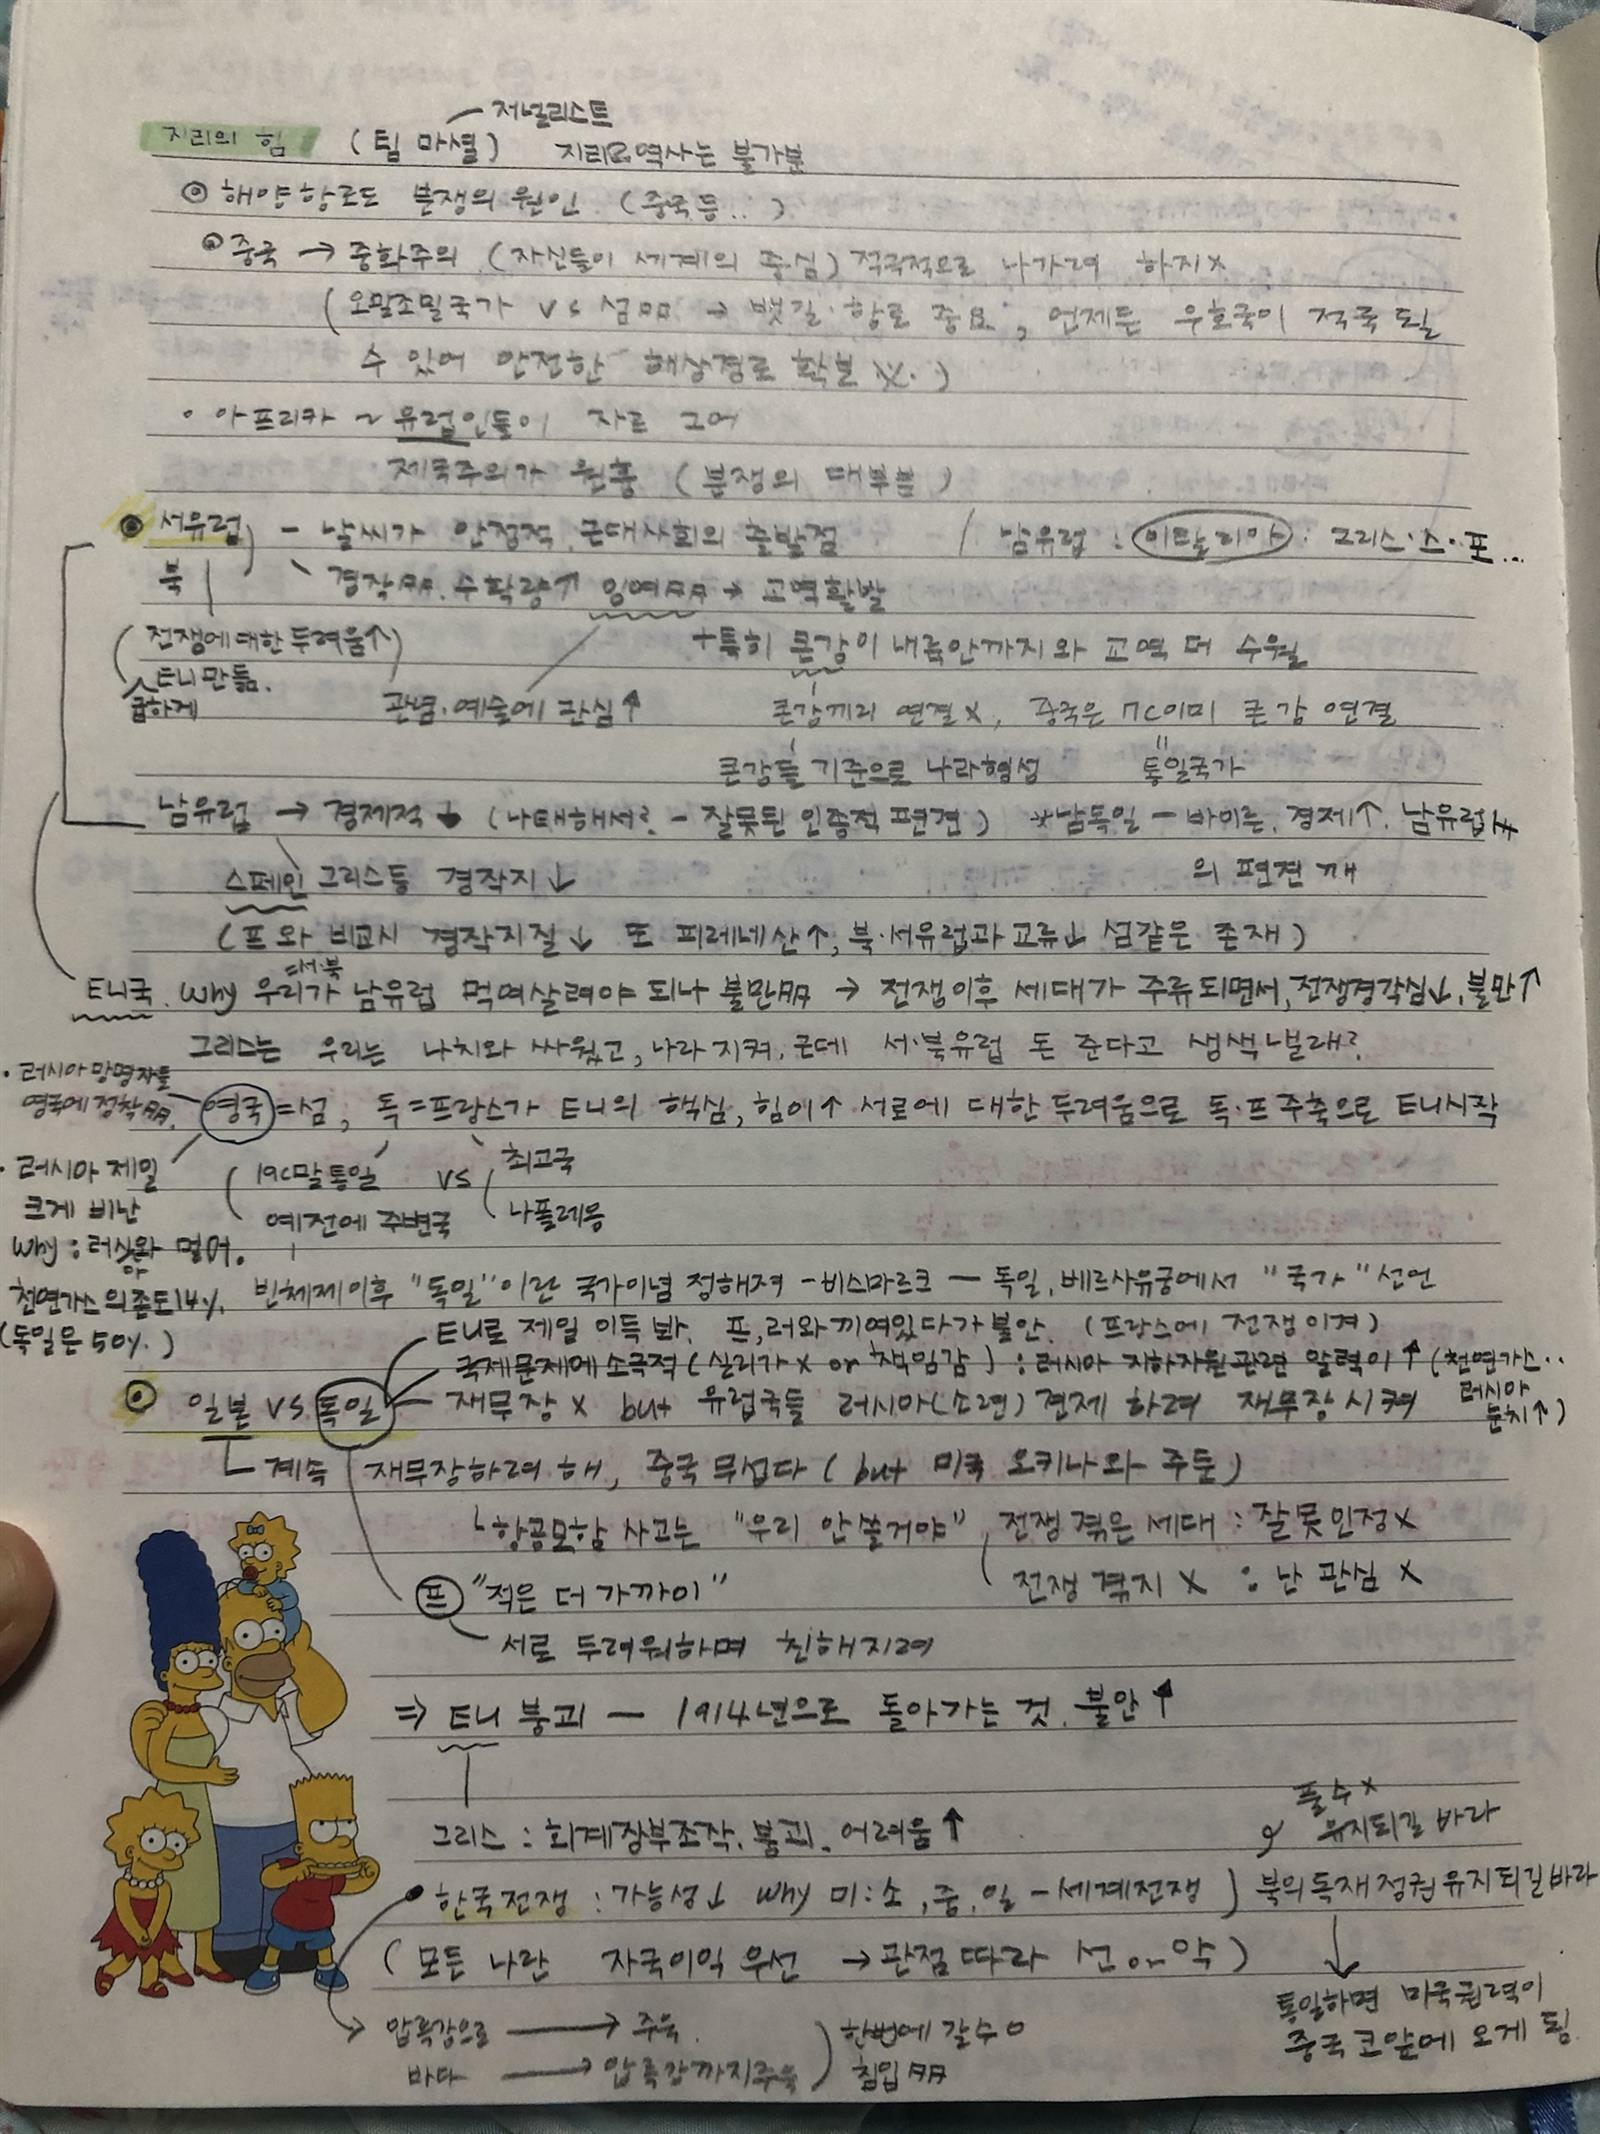 저널리스트
지리의 힘 (팀 마셜) 지리와 역사는 불가분
◎ 해양항로도 분쟁의 원인 (중국 등..)
◎ 중국 → 중화주의 (자신들이 세계의 중심) 적극적으로 나가려 하지 x
(오밀조밀국가 vs 섬 → 뱃길·항로 중요, 언제든 우호국이 적국 될
수 있어 안전한 해상경로 확보 x.)
• 아프리카 ~ 유럽인들이 자로 그어
제국주의가 원흉 (분쟁의 대부분)
◉ 서유럽 - 날씨가 안정적, 근대사회의 출발점 / 남유럽 : 이탈리아 : 그리스·스·포...
북 경작多多. 수확량↑ 잉여多多 → 교역활발
(전쟁에 대한 두려움↑) +특히 큰강이 내륙안까지 와 교역 더 수월
급하게 EU 만듦. 관념·예술에 관심↑ 큰강끼리 연결 x, 중국은 7C이미 큰 강 연결
큰강들 기준으로 나라형성 통일국가
남유럽 → 경제적↓ (나태해서? - 잘못된 인종적 편견) *남독일 - 바이른, 경제↑, 남유럽
의 편견 깨
스페인 그리스등 경작지↓
(프와 비교시 경작지질↓ 또 피레네산↑, 북·서유럽과 교류↓ 섬같은 존재)
=서·북
EU국. why 우리가 남유럽 먹여살려야 되나 불만多 → 전쟁이후 세대가 주류되면서, 전쟁경각심↓, 불만↑
그리스는 우리는 나치와 싸웠고, 나라 지켜, 근데 서·북유럽 돈 준다고 생색낼래?
• 러시아 망명자들
영국에 정착多多. 영국=섬, 독=프랑스가 EU의 핵심, 힘이↑ 서로에 대한 두려움으로 독·프 주축으로 EU시작
• 러시아 제일 (19C말 통일 vs 최고국
크게 비난 예전에 주변국 나폴레옹
why : 러시아와 멀어.
천연가스 의존도 14%. 빈체제이후 "독일"이란 국가이념 정해져 - 비스마르크 - 독일, 베르사유궁에서 "국가" 선언
(독일은 50%.) EU로 제일 이득 봐. 프, 러와 끼여있다가 불안. (프랑스에 전쟁 이겨)
국제문제에 소극적 (실리가 x or 책임감) : 러시아 지하자원 관련 압력이↑ (천연가스..
◉ 일본 vs 독일 - 재무장 x but 유럽국들 러시아(소련) 견제 하려 재무장 시켜 러시아
눈치↑)
계속 재무장하려 해, 중국 무섭다 (but 미국 오키나와 주둔)
항공모함 사고는 "우리 안 쓸거야", 전쟁 겪은 세대 : 잘못인정 x
전쟁 겪지 x : 난 관심 x
프 "적은 더 가까이"
서로 두려워하며 친해지려
⇒ EU 붕괴 - 1914년으로 돌아가는 것. 불안↑
그리스 : 회계장부조작. 붕괴. 어려움↑
풀 수 x
유지되길 바라
• 한국전쟁 : 가능성↓ why 미:소, 중, 일 - 세계전쟁) 북의 독재 정권 유지되길 바라
(모든 나란 자국이익 우선 → 관점따라 선 or 악)
통일하면 미국권력이
중국 코앞에 오게 됨.
압록강으로 → 주욱. 한번에 갈수 o
바다 → 압록강까지주욱 침입多多